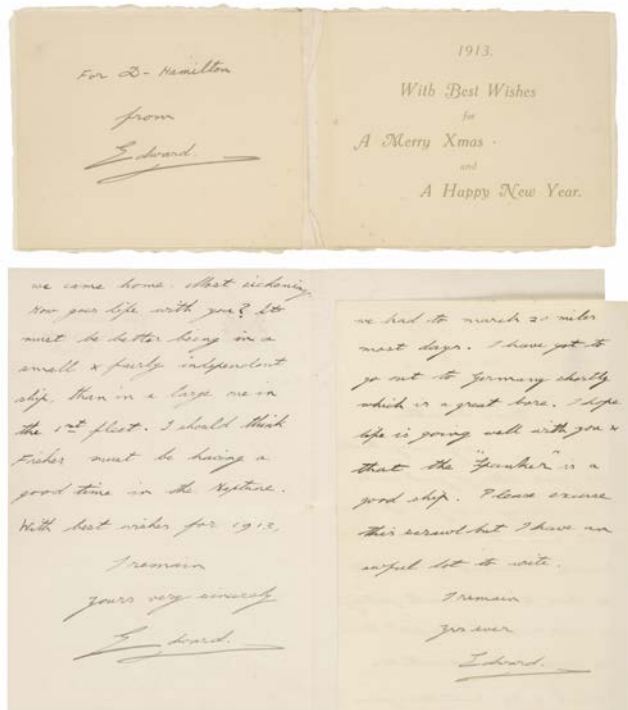 For D- Hamilton
from
Edward.
1913.
With Best Wishes
for
A Merry Xmas
and
A Happy New Year.
we come home. Most sickening.
How goes life with you? It
must be better being in a
small & fairly independent
ship, than in a large one in
the 1st fleet. I should think
Fisher must be having a
good time in the Neptune.
With best wishes for 1913,
I remain
yours very sincerely
Edward.
we had to march 20 miles
most days. I have got to
go out to Germany shortly
which is a great bore. I hope
life is going well with you &
that the "Spanker" is a
good ship. Please excuse
this scrawl but I have an
awful lot to write.
I remain
Yrs ever
Edward.